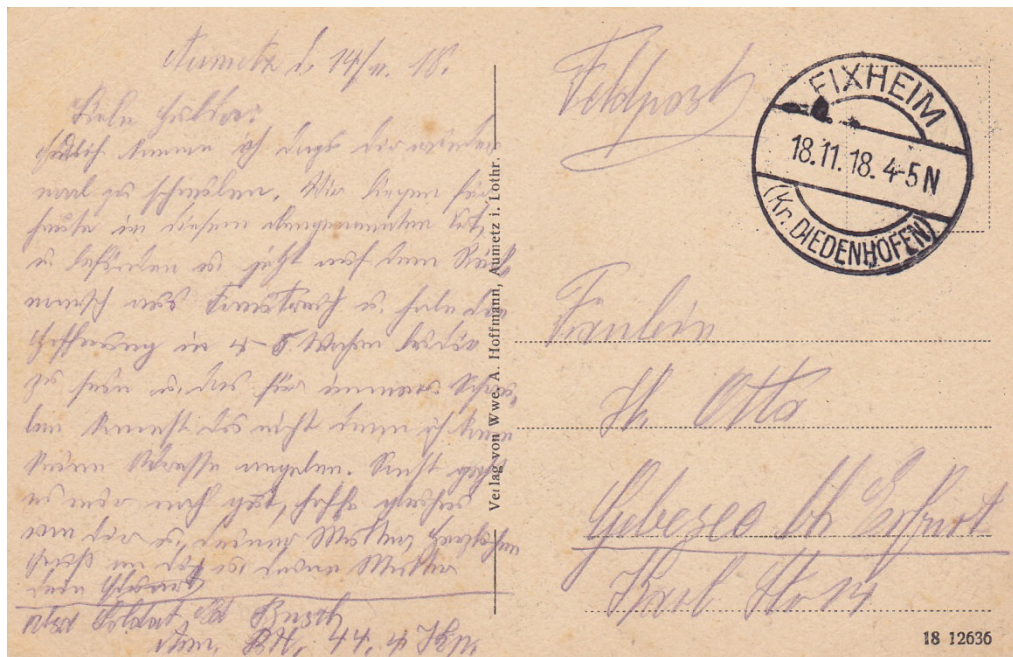 Aumetz d. 14/11. 18.
kann ich dazu dir wieder
mal zu schreiben. Wir liegen für
heute in diesem obengenannten Ort,
u. jetzt auf dem Rück-
marsch aus Frankreich u. habe die
Hoffnung in 4-5 Wochen bei dir
zu sein u. das für immer. Schrei-
ben kannst du nicht denn ich kann
keine Adresse angeben. Sonst geht
es mir noch gut, hoffe gleiches
von dir u. deiner Mutter, Herzlichen
Gruß an dich u. deine Mutter
dein
Soldat Busch
44.
Verlag von Wwe. A. Hoffmann, Aumetz i. Lothr.
Feldpost
FIXHEIM
18.11.18. 4-5 N
(Kr. DIEDENHOFEN)
Fräulein
Otto
Gebesee b/ Erfurt
Karl
18 12636